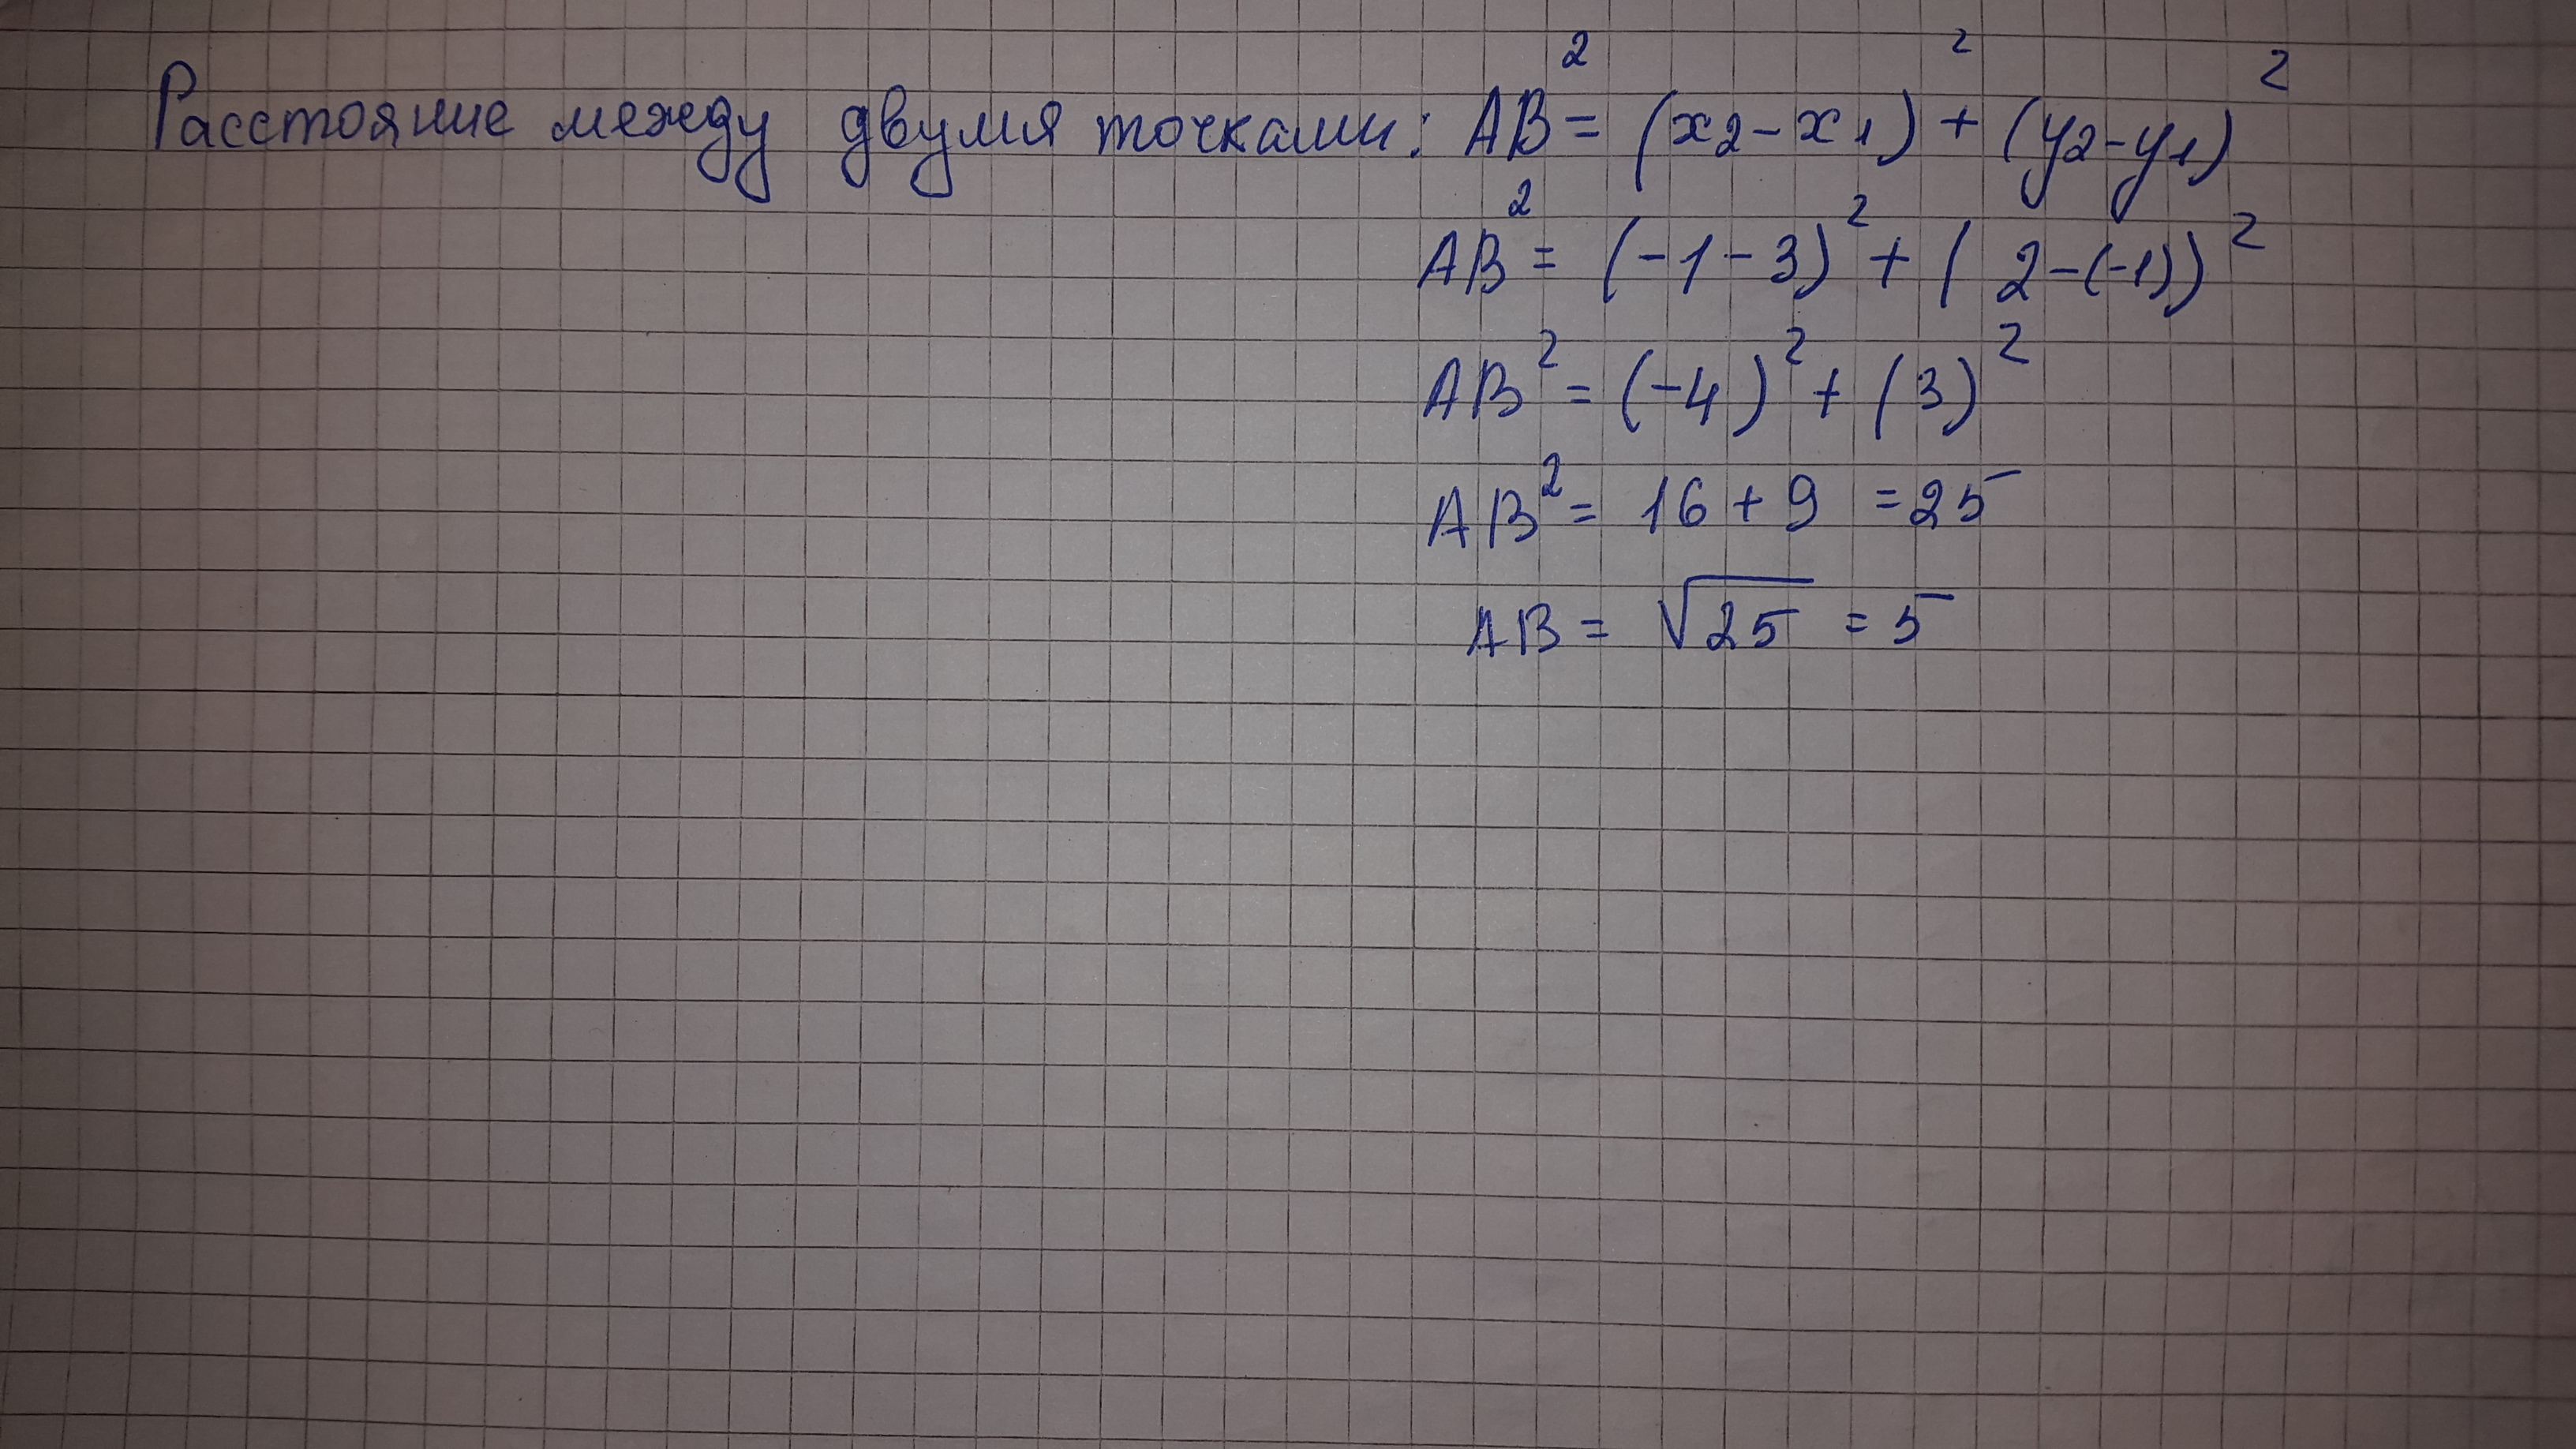 Расстояние между двумя точками: AB² = (x₂-x₁)² + (y₂-y₁)²
AB² = (-1-3)² + (2-(-1))²
AB² = (-4)² + (3)²
AB² = 16 + 9 = 25
AB = √25 = 5